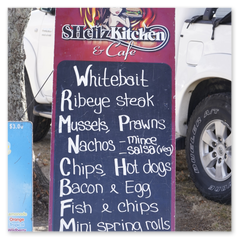 SHellzKitchen
& Cafe
Whitebait
Ribeye steak
Mussels, Prawns
Nachos - mince
salsa (veg)
Chips, Hot dogs
Bacon & Egg
Fish & chips
Mini spring rolls